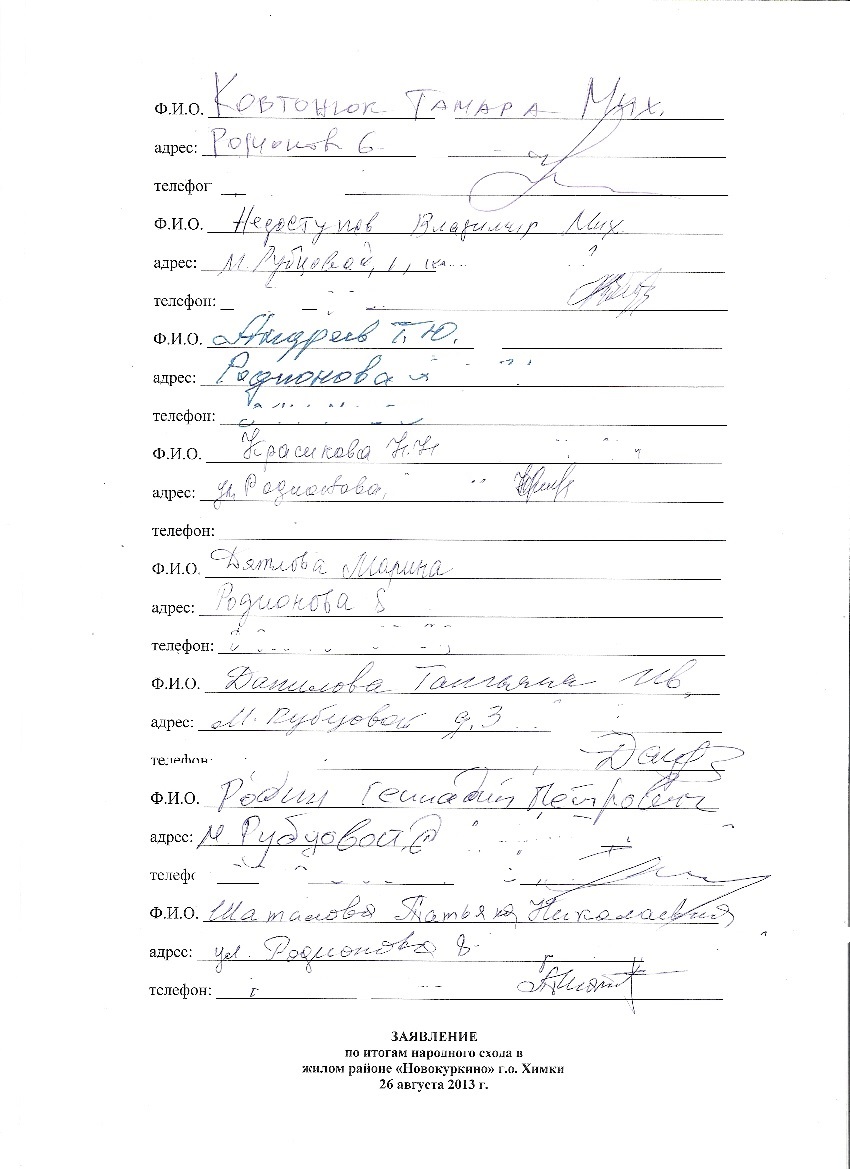 Ф.И.О. Ковтонюк Тамара Мих.
адрес: Родионов 6
телефон
Ф.И.О. Недоступов Владимир Мих.
адрес: М. Рубцовой, 1,
телефон:
Ф.И.О. Андреев Г.Ю.
адрес: Родионова
телефон:
Ф.И.О. Красикова Н.Н
адрес: ул. Родионова,
телефон:
Ф.И.О. Дятлова Марина
адрес: Родионова 8
телефон:
Ф.И.О. Данилова Татьяна Ив.
адрес: М. Рубцовой д.3
телефон:
Ф.И.О. Родин Геннадий Петрович
адрес: М. Рубцовой,
телефо
Ф.И.О. Шаталова Татьяна Николаевна
адрес: ул. Родионова 8
телефон:
ЗАЯВЛЕНИЕ
по итогам народного схода в
жилом районе «Новокуркино» г.о. Химки
26 августа 2013 г.